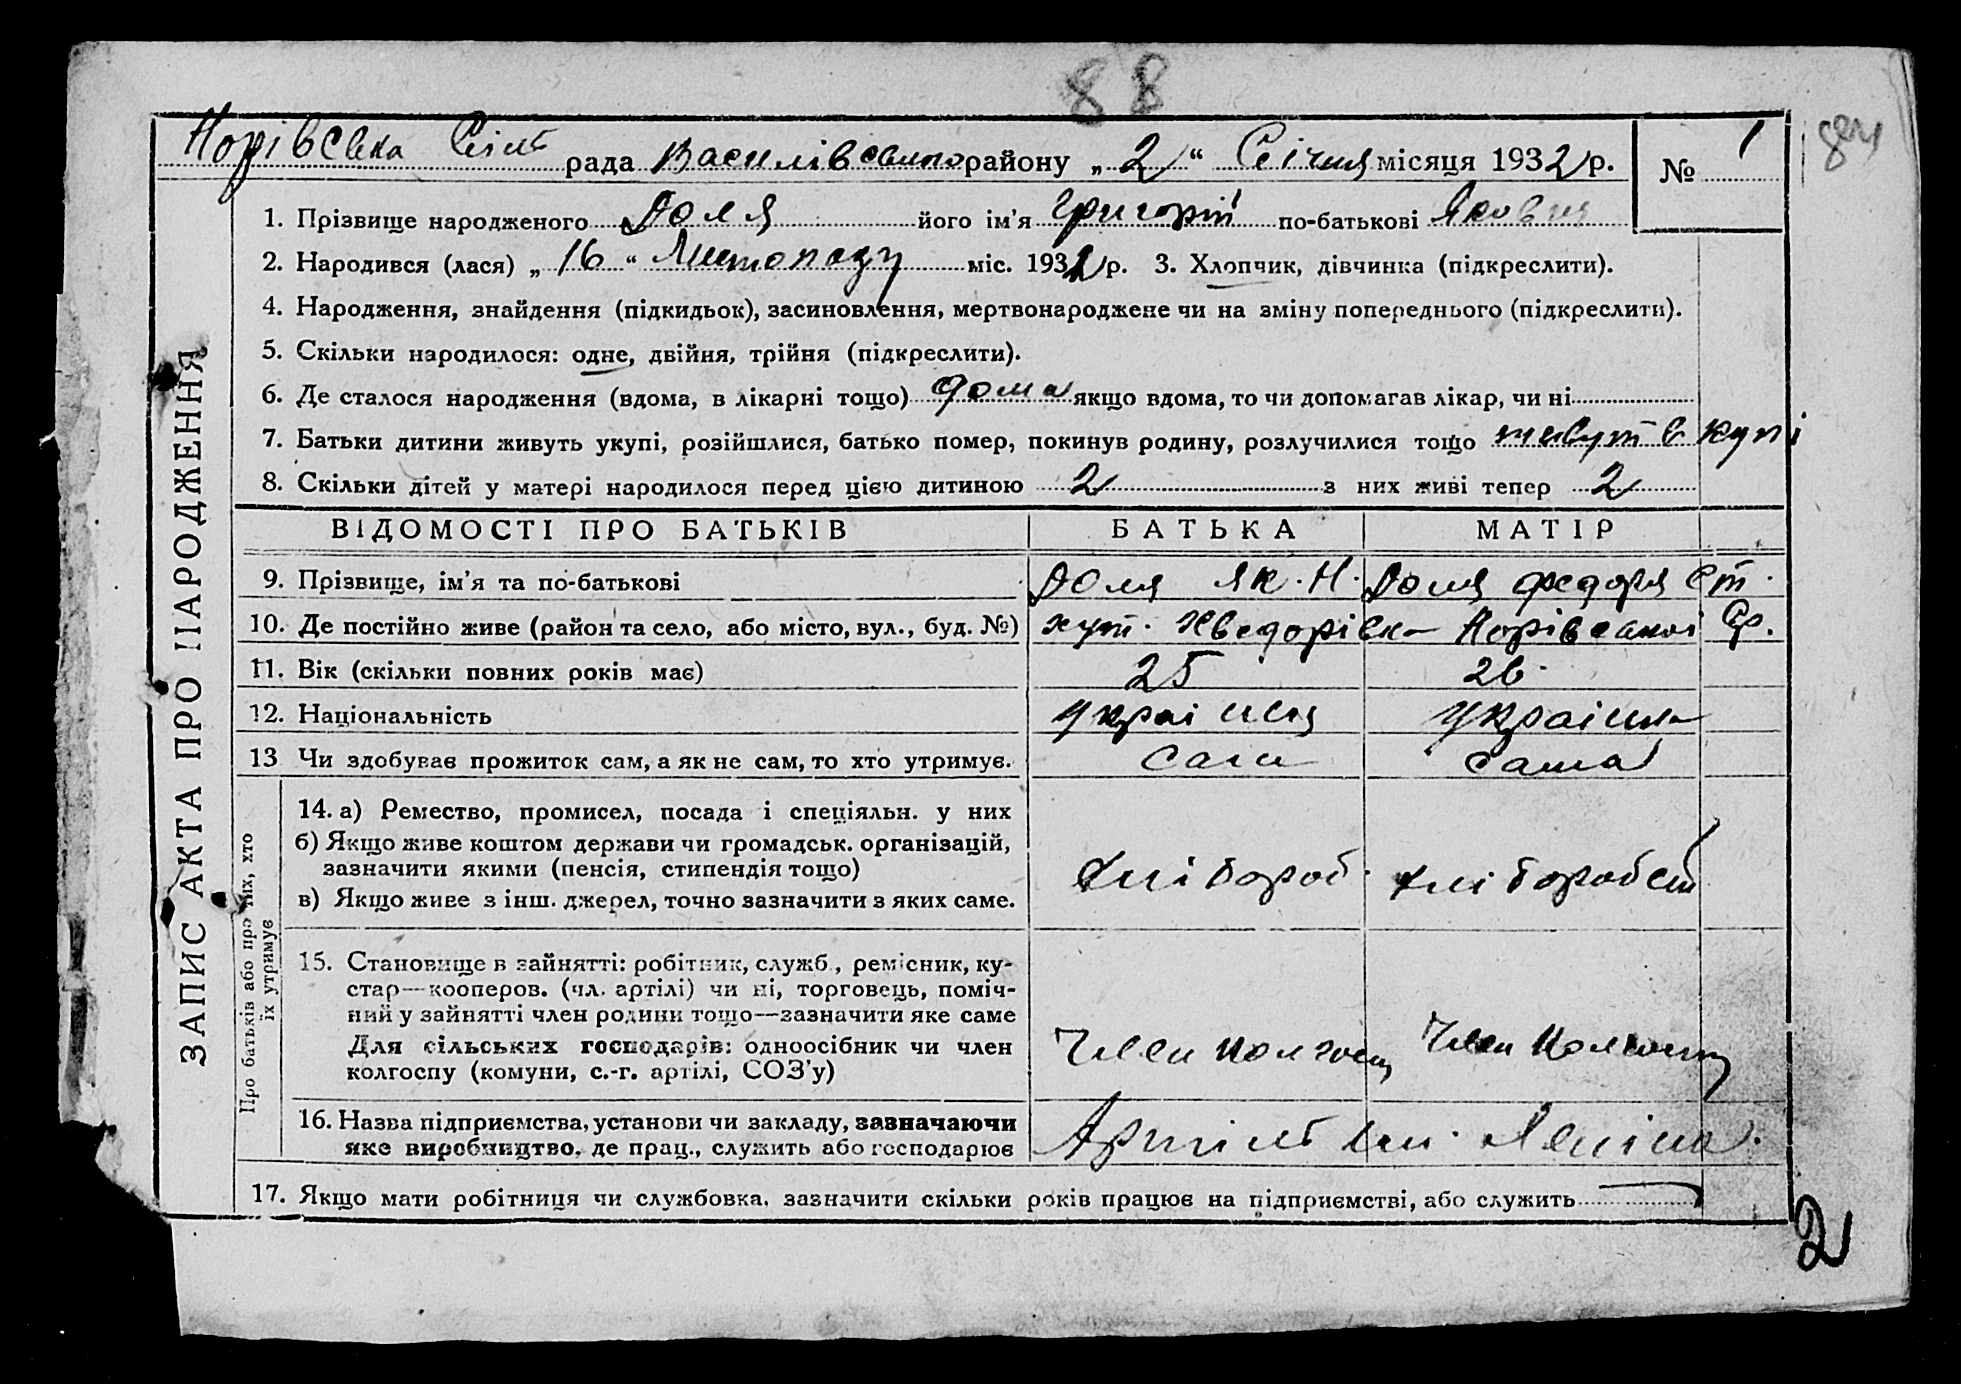 88
84
Норівська Сіль рада Василівського району „2" Січня місяця 1932 р. № 1
1. Прізвище народженого Доля його ім'я Григорій по-батькові Якович
2. Народився (лася) „16" Листопаду міс. 1931 р. 3. Хлопчик, дівчинка (підкреслити).
4. Народження, знайдення (підкидьок), засиновлення, мертвонароджене чи на зміну попереднього (підкреслити).
5. Скільки народилося: одне, двійня, трійня (підкреслити).
6. Де сталося народження (вдома, в лікарні тощо) дома якщо вдома, то чи допомагав лікар, чи ні
7. Батьки дитини живуть укупі, розійшлися, батько помер, покинув родину, розлучилися тощо живут в купі
8. Скільки дітей у матері народилося перед цією дитиною 2 з них живі тепер 2
ВІДОМОСТІ ПРО БАТЬКІВ БАТЬКА МАТІР
9. Прізвище, ім'я та по-батькові Доля Як. Н. Доля Федоря Ст.
10. Де постійно живе (район та село, або місто, вул., буд. №) хут. Хведорівка Норівської Ср.
11. Вік (скільки повних років має) 25 26
12. Національність українец українка
13 Чи здобуває прожиток сам, а як не сам, то хто утримує. сам сама
14. а) Ремество, промисел, посада і спеціяльн. у них
б) Якщо живе коштом держави чи громадськ. організацій,
зазначити якими (пенсія, стипендія тощо)
в) Якщо живе з інш. джерел, точно зазначити з яких саме.
хлібороб. хлібороб
15. Становище в зайнятті: робітник, служб., ремісник, ку-
стар—кооперов. (чл. артілі) чи ні, торговець, поміч-
ний у зайнятті член родини тощо—зазначити яке саме
Для сільських господарів: одноосібник чи член
колгоспу (комуни, с.-г. артілі, СОЗ'у)
Член колгоспу Член колгоспу
16. Назва підприємства, установи чи закладу, зазначаючи
яке виробництво, де прац., служить або господарює
Артіль Ім. Леніна.
17. Якщо мати робітниця чи службовка, зазначити скільки років працює на підприємстві, або служить
ЗАПИС АКТА ПРО НАРОДЖЕННЯ
Про батьків або про них, хто
їх утримує
2